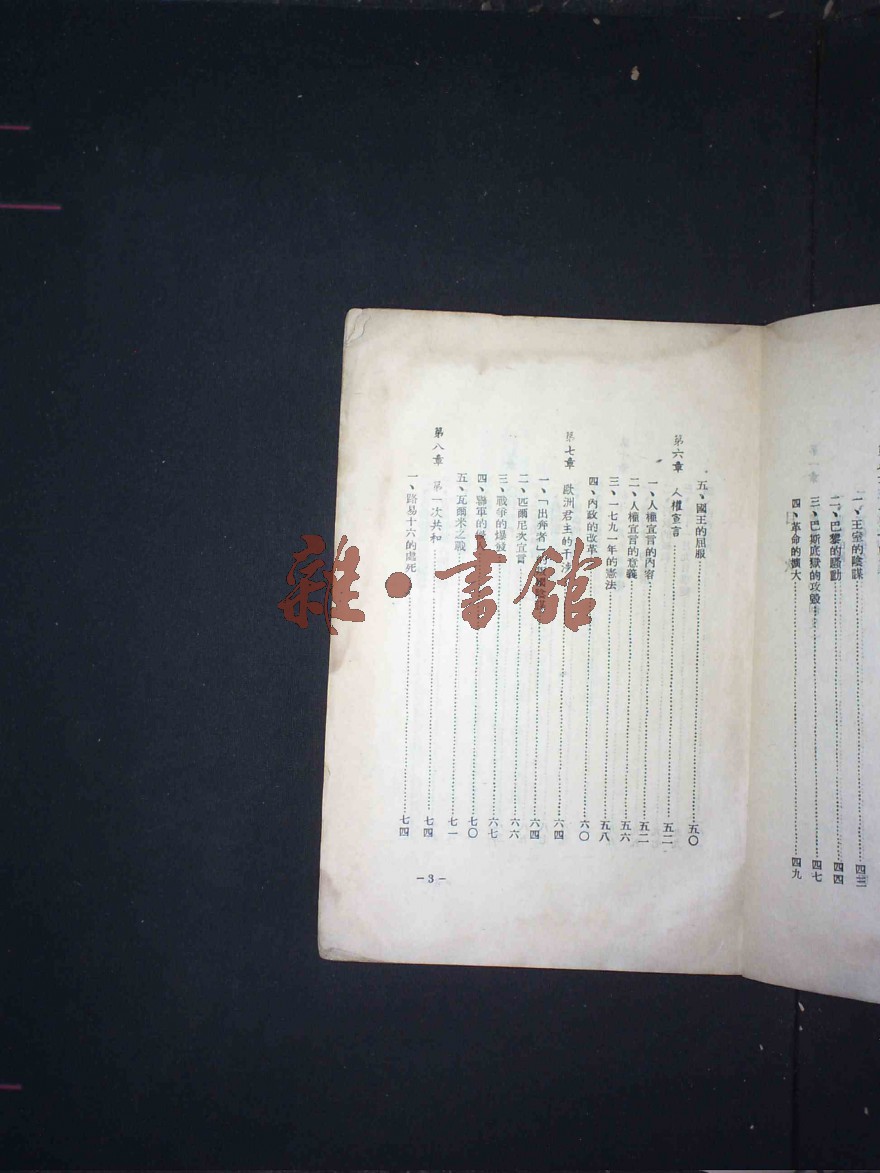 一、王室的陰謀………四三
二、巴黎的騷動………四四
三、巴斯底獄的攻毀………四七
四、革命的擴大………四九
五、國王的屈服………五〇
第六章 人權宣言………五二
一、人權宣言的內容………五二
二、人權宣言的意義………五六
三、一七九一年的憲法………五八
四、內政的改革………六〇
第七章 歐洲君主的干涉………六四
一、「出奔者」………六四
二、匹爾尼次宣言………六六
三、戰爭的爆發………六七
四、聯軍的………七〇
五、瓦爾米之戰………七一
第八章 第一次共和………七四
一、路易十六的處死………七四
－3－
雜·書館